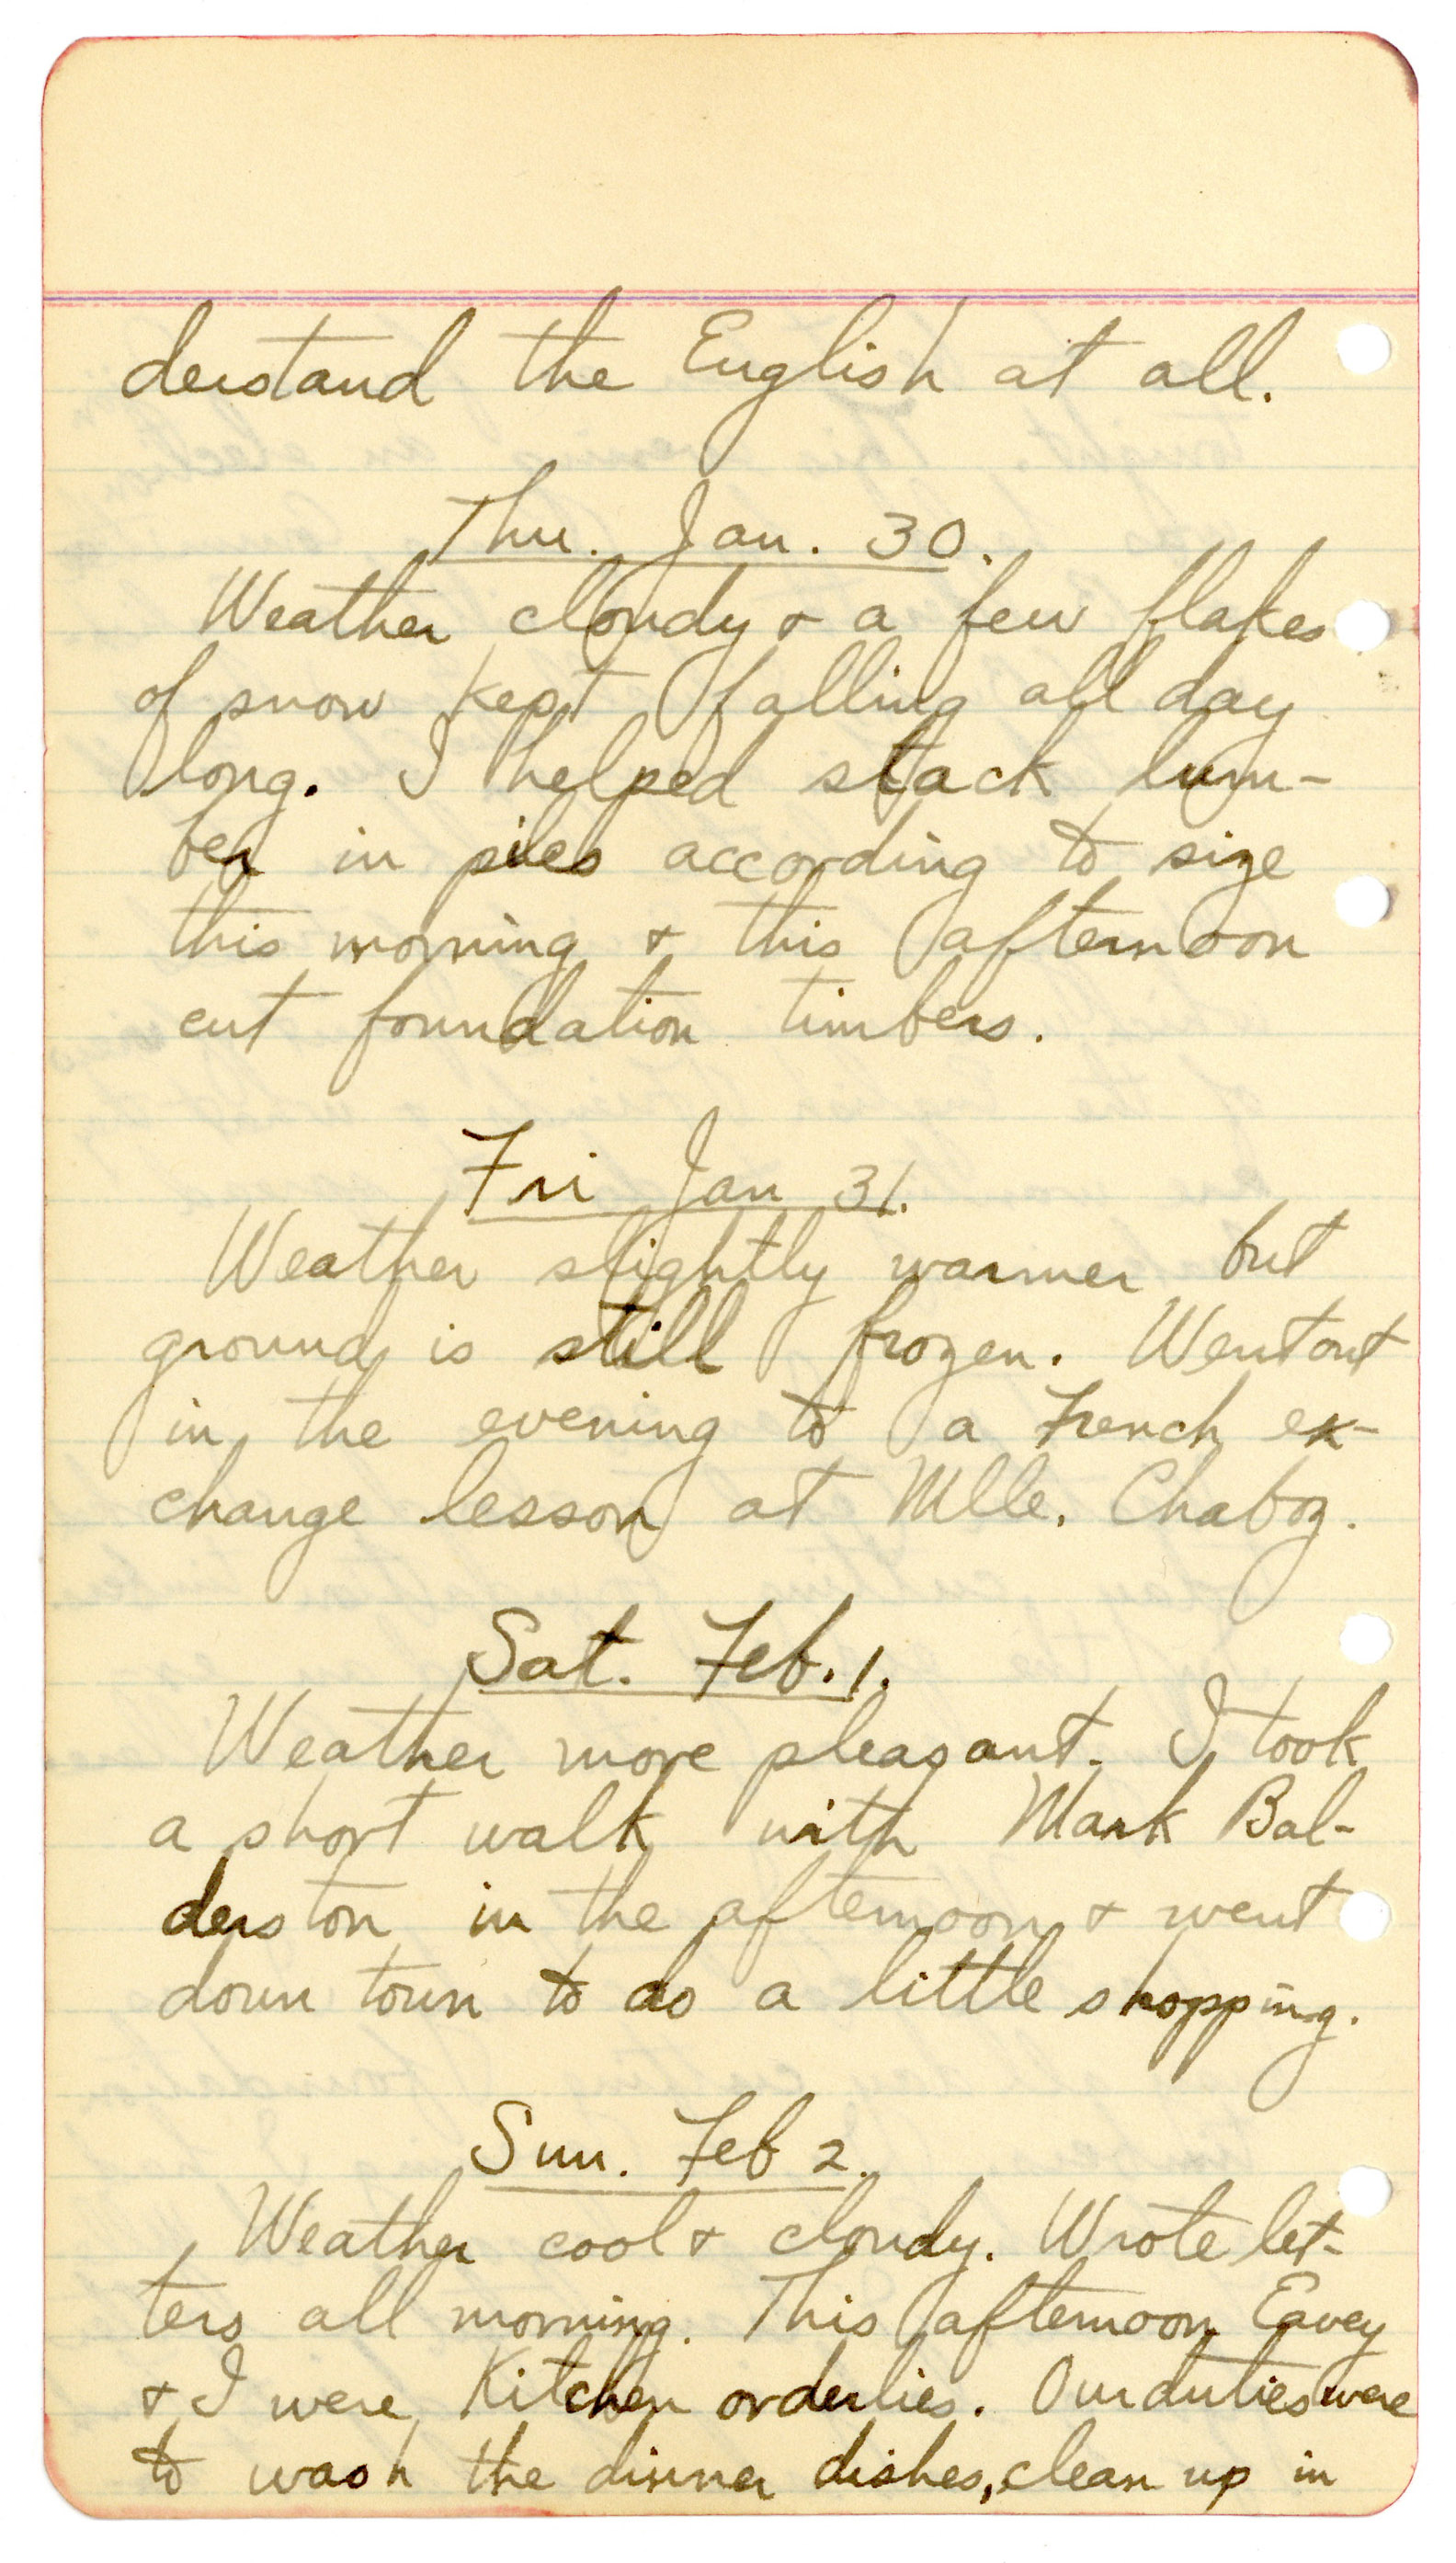 derstand the English at all.
Thu. Jan. 30.
Weather cloudy & a few flakes
of snow kept falling all day
long. I helped stack lum-
ber in piles according to size
this morning & this afternoon
cut foundation timbers.
Fri Jan 31.
Weather slightly warmer but
ground is still frozen. Went out
in the evening to a French ex-
change lesson at Mlle. Chaboz.
Sat. Feb. 1.
Weather more pleasant. I took
a short walk with Mark Bal-
derston in the afternoon & went
down town to do a little shopping.
Sun. Feb 2.
Weather cool & cloudy. Wrote let-
ters all morning. This afternoon Eavey
& I were Kitchen orderlies. Our duties were
to wash the dinner dishes, clean up in